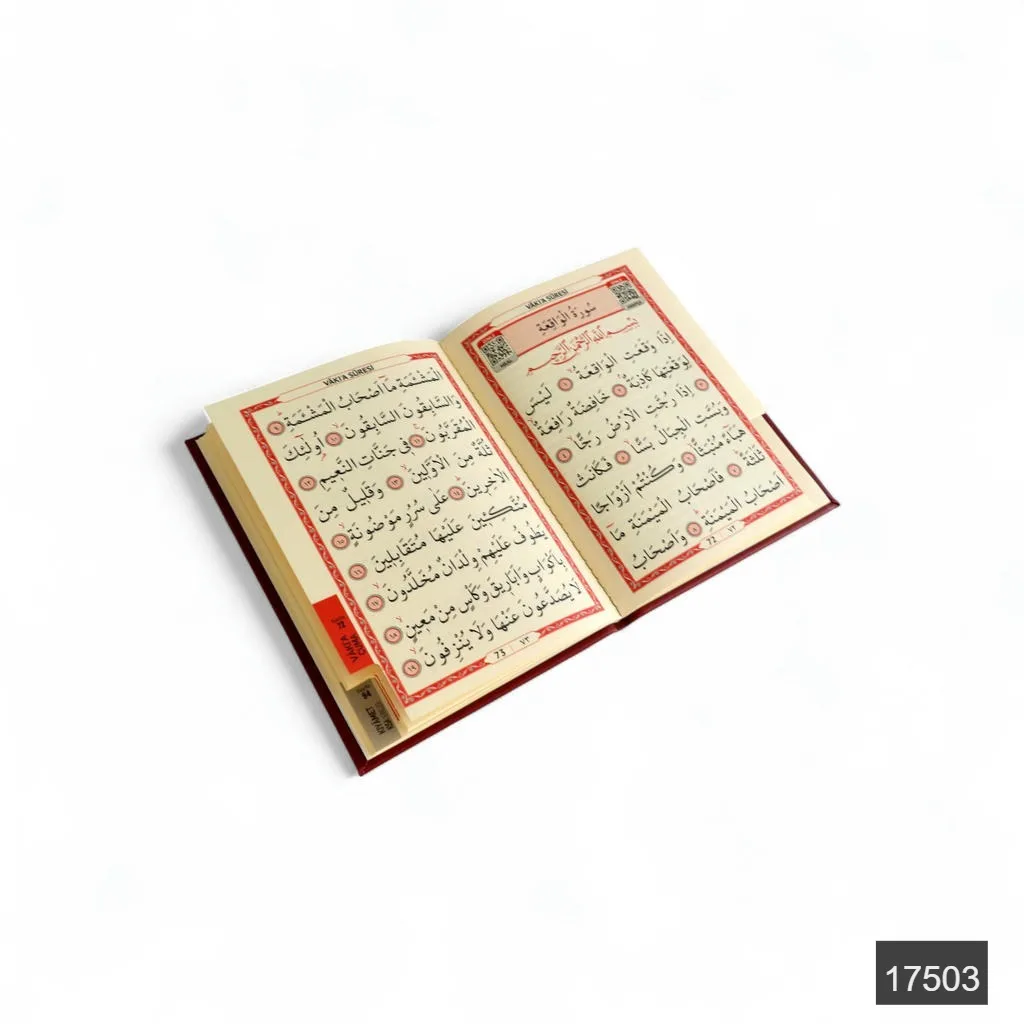 VÂKI'A SÛRESİ
سُورَةُ الْوَاقِعَةِ
بِسْمِ اللّٰهِ الرَّحْمٰنِ الرَّحِيمِ
اِذَا وَقَعَتِ الْوَاقِعَةُ ﴿١﴾ لَيْسَ
لِوَقْعَتِهَا كَاذِبَةٌ ﴿٢﴾ خَافِضَةٌ رَافِعَةٌ
﴿٣﴾ اِذَا رُجَّتِ الْاَرْضُ رَجًّا ﴿٤﴾
وَبُسَّتِ الْجِبَالُ بَسًّا ﴿٥﴾ فَكَانَتْ
هَبَاءً مُنْبَثًّا ﴿٦﴾ وَكُنْتُمْ اَزْوَاجًا
ثَلٰثَةً ﴿٧﴾ فَاَصْحَابُ الْمَيْمَنَةِ مَا
اَصْحَابُ الْمَيْمَنَةِ ﴿٨﴾ وَاَصْحَابُ
72 ٧٢
VÂKI'A SÛRESİ
الْمَشْئَمَةِ مَا اَصْحَابُ الْمَشْئَمَةِ ﴿٩﴾
وَالسَّابِقُونَ السَّابِقُونَ ﴿١٠﴾ اُولٰئِكَ
الْمُقَرَّبُونَ ﴿١١﴾ فِي جَنَّاتِ النَّعِيمِ ﴿١٢﴾
ثُلَّةٌ مِنَ الْاَوَّلِينَ ﴿١٣﴾ وَقَلِيلٌ مِنَ
الْاٰخِرِينَ ﴿١٤﴾ عَلٰى سُرُرٍ مَوْضُونَةٍ ﴿١٥﴾
مُتَّكِئِينَ عَلَيْهَا مُتَقَابِلِينَ ﴿١٦﴾
يَطُوفُ عَلَيْهِمْ وِلْدَانٌ مُخَلَّدُونَ ﴿١٧﴾
بِاَكْوَابٍ وَاَبَارِيقَ وَكَأْسٍ مِنْ مَعِينٍ ﴿١٨﴾
لَا يُصَدَّعُونَ عَنْهَا وَلَا يُنْزِفُونَ ﴿١٩﴾
73 ٧٣
VÂKI'A
CUMA
KIYÂMET
17503